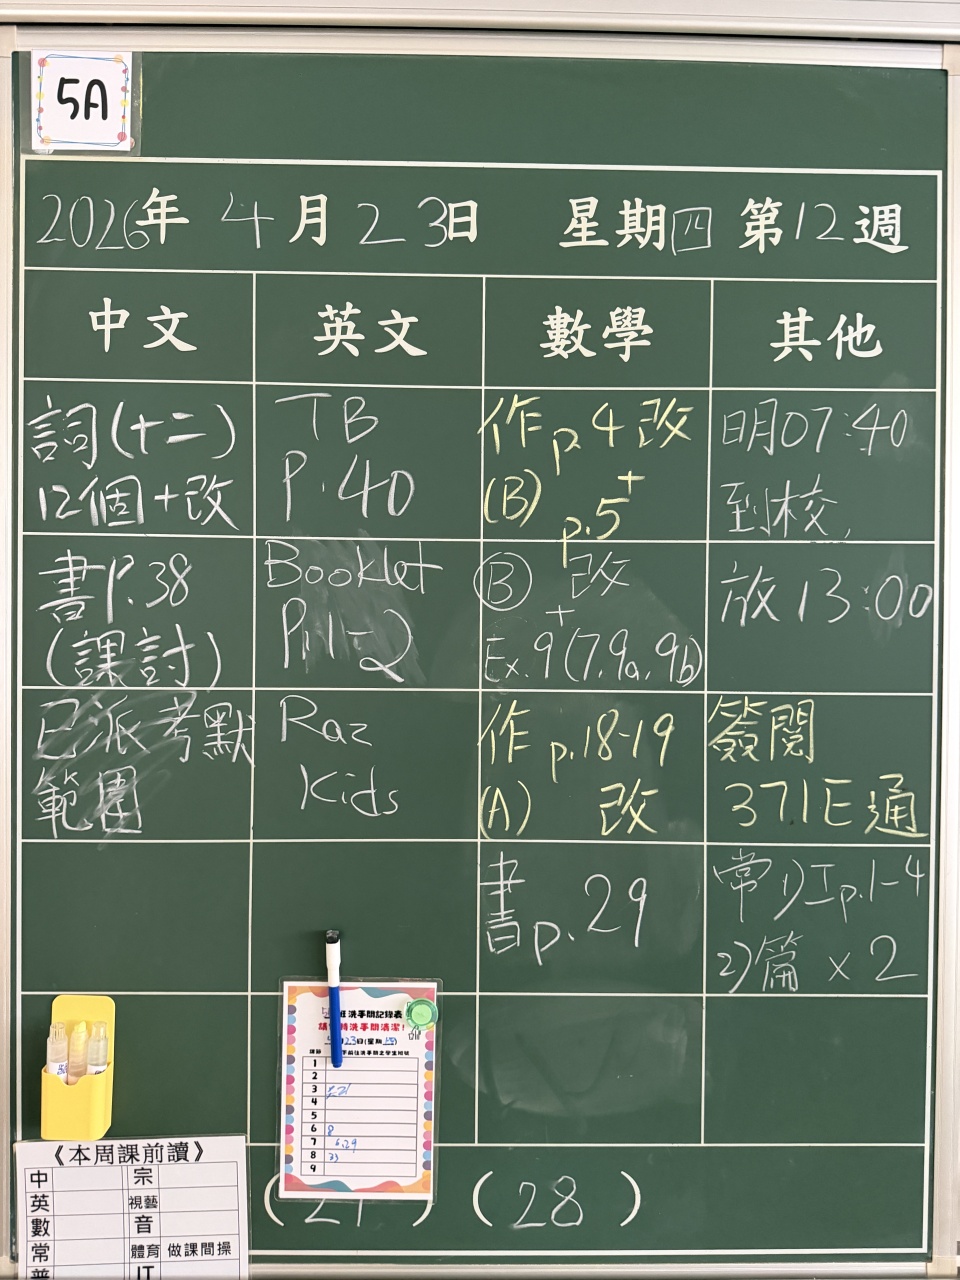 5A
2026年 4月23日 星期四 第12週
中文
英文
數學
其他
詞(十二)
12個+改
TB
P.40
作 p.4改
(B) p.5+
明07:40
到校,
書P.38
(課討)
Booklet
P.1-2
Ⓑ 改
+
Ex.9(7,9a,9b)
放13:00
已派考默
範圍
Raz
Kids
作 p.18-19
(A) 改
簽閱
371E通
書p.29
常1)工p.1-4
2)篇×2
班洗手間記錄表
23日(星期四)
1
2
3
4
5
6 8
7 6,29
8 33
9
(27)
(28)
《本周課前讀》
中 宗
英 視藝
數 音
常 體育 做課間操
普 IT